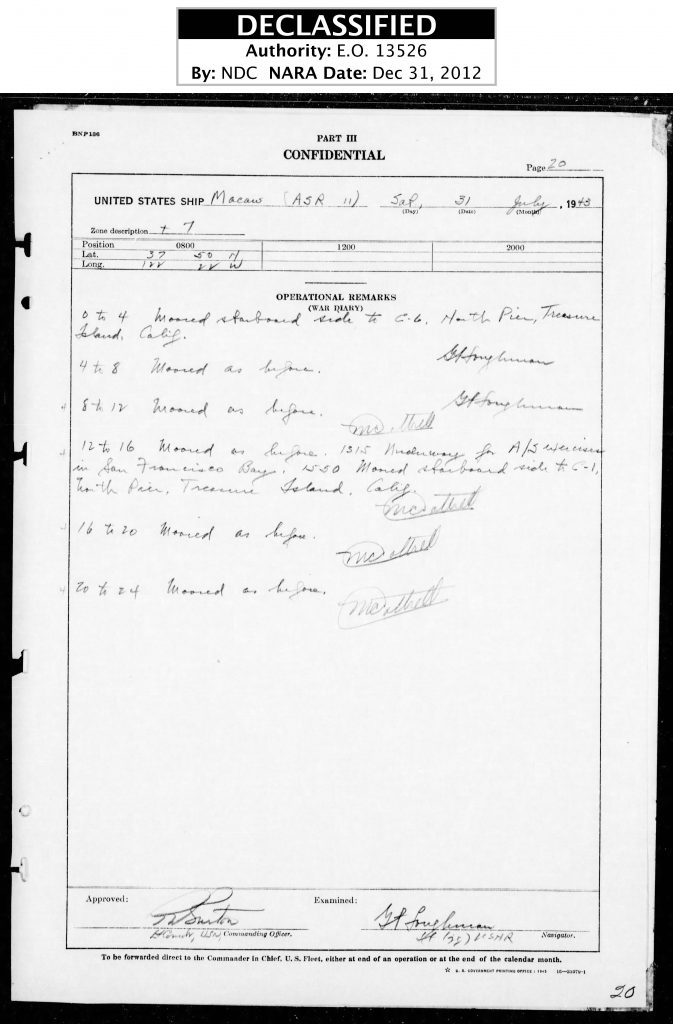 DECLASSIFIED
Authority: E.O. 13526
By: NDC NARA Date: Dec 31, 2012
BNP186
PART III
CONFIDENTIAL
Page 20
UNITED STATES SHIP Macaw (ASR 11) Sat, 31 July, 1943
(Day) (Date) (Month)
Zone description + 7
Position 0800 1200 2000
Lat. 37 50 N
Long. 122 22 W
OPERATIONAL REMARKS
(WAR DIARY)
0 to 4 Moored starboard side to C-6, North Pier, Treasure
Island, Calif.
4 to 8 Moored as before.
8 to 12 Moored as before.
12 to 16 Moored as before. 1315 Underway for A/S exercises
in San Francisco Bay. 1550 Moored starboard side to C-1,
North Pier, Treasure Island, Calif.
16 to 20 Moored as before.
20 to 24 Moored as before.
Approved: Examined:
USN Commanding Officer. Lt (jg) USNR Navigator.
To be forwarded direct to the Commander in Chief, U. S. Fleet, either at end of an operation or at the end of the calendar month.
☆ U. S. GOVERNMENT PRINTING OFFICE : 1943
20